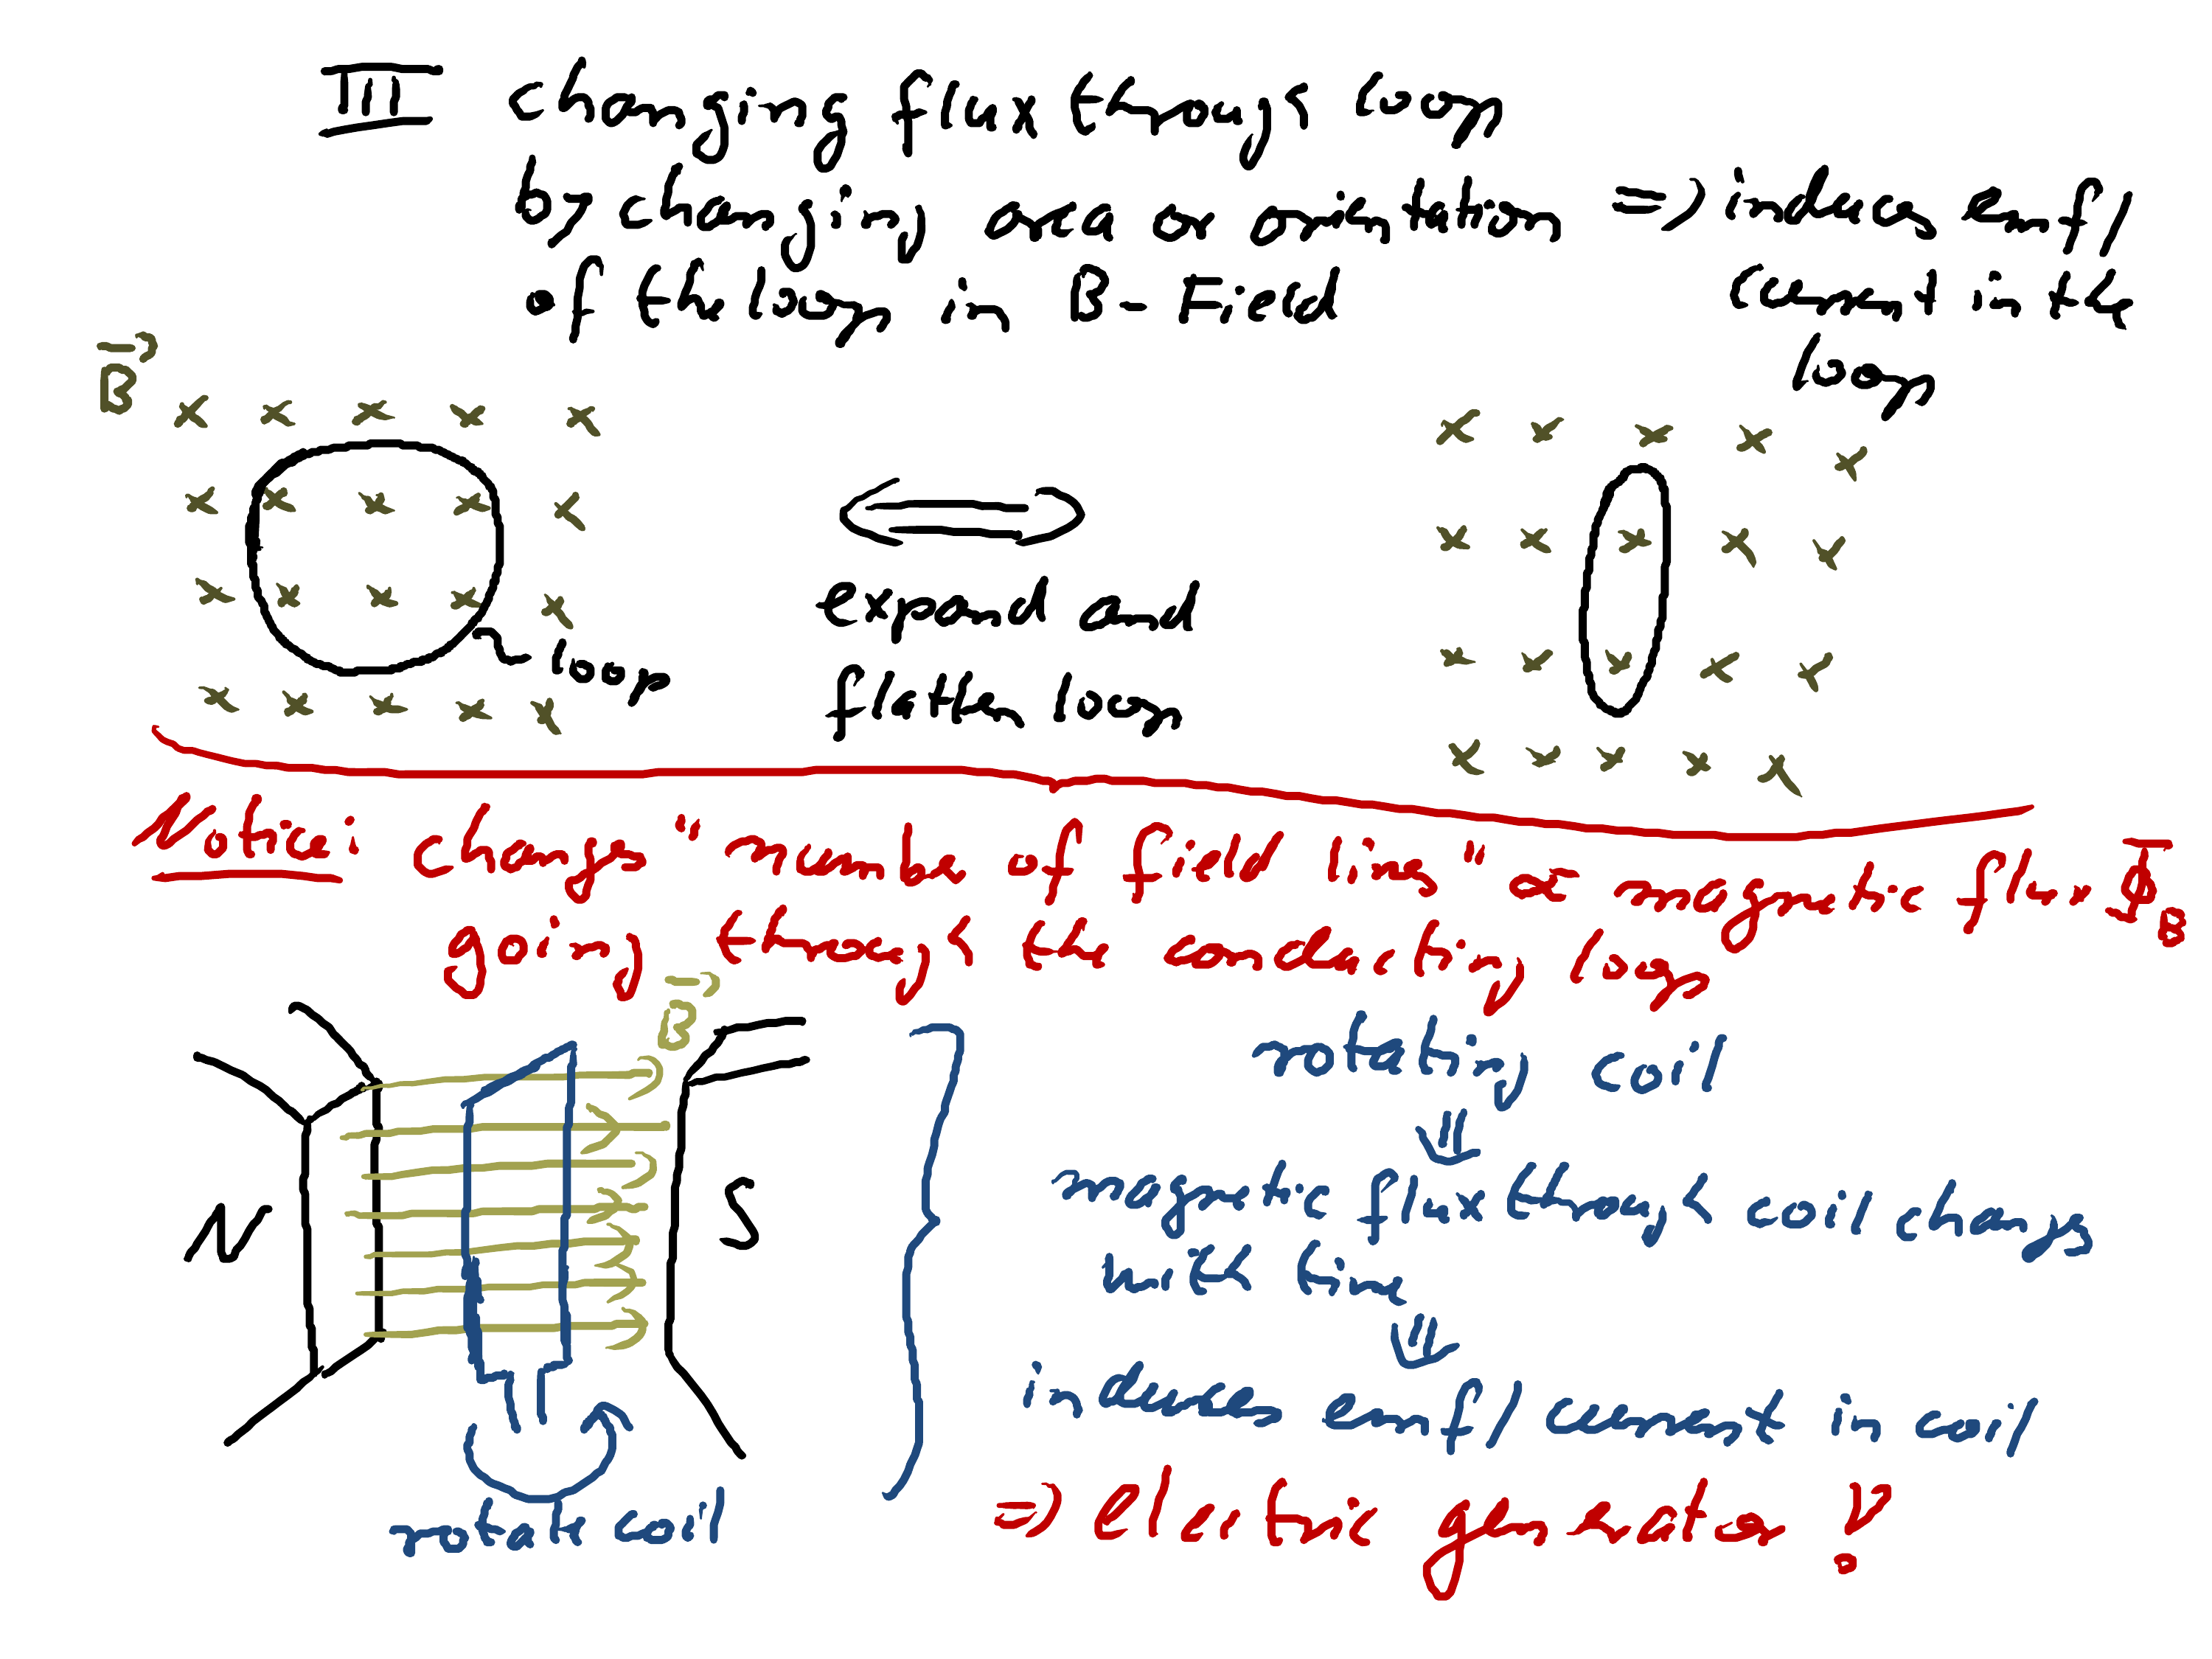 III changing flux through loop
by changing area or orientation => induces emf/
of the loop in B-Field
current in the
loop
B
loop
expand and
flatten loop
Notice: change "number of field lines" ∝ magnetic flux Φ_B
going through the conducting loop
B
N
S
rotate coil
rotating coil
⇓
magnetic flux through coil changes
with time
⇓
induces emf/current in coil
=> Electric generator!